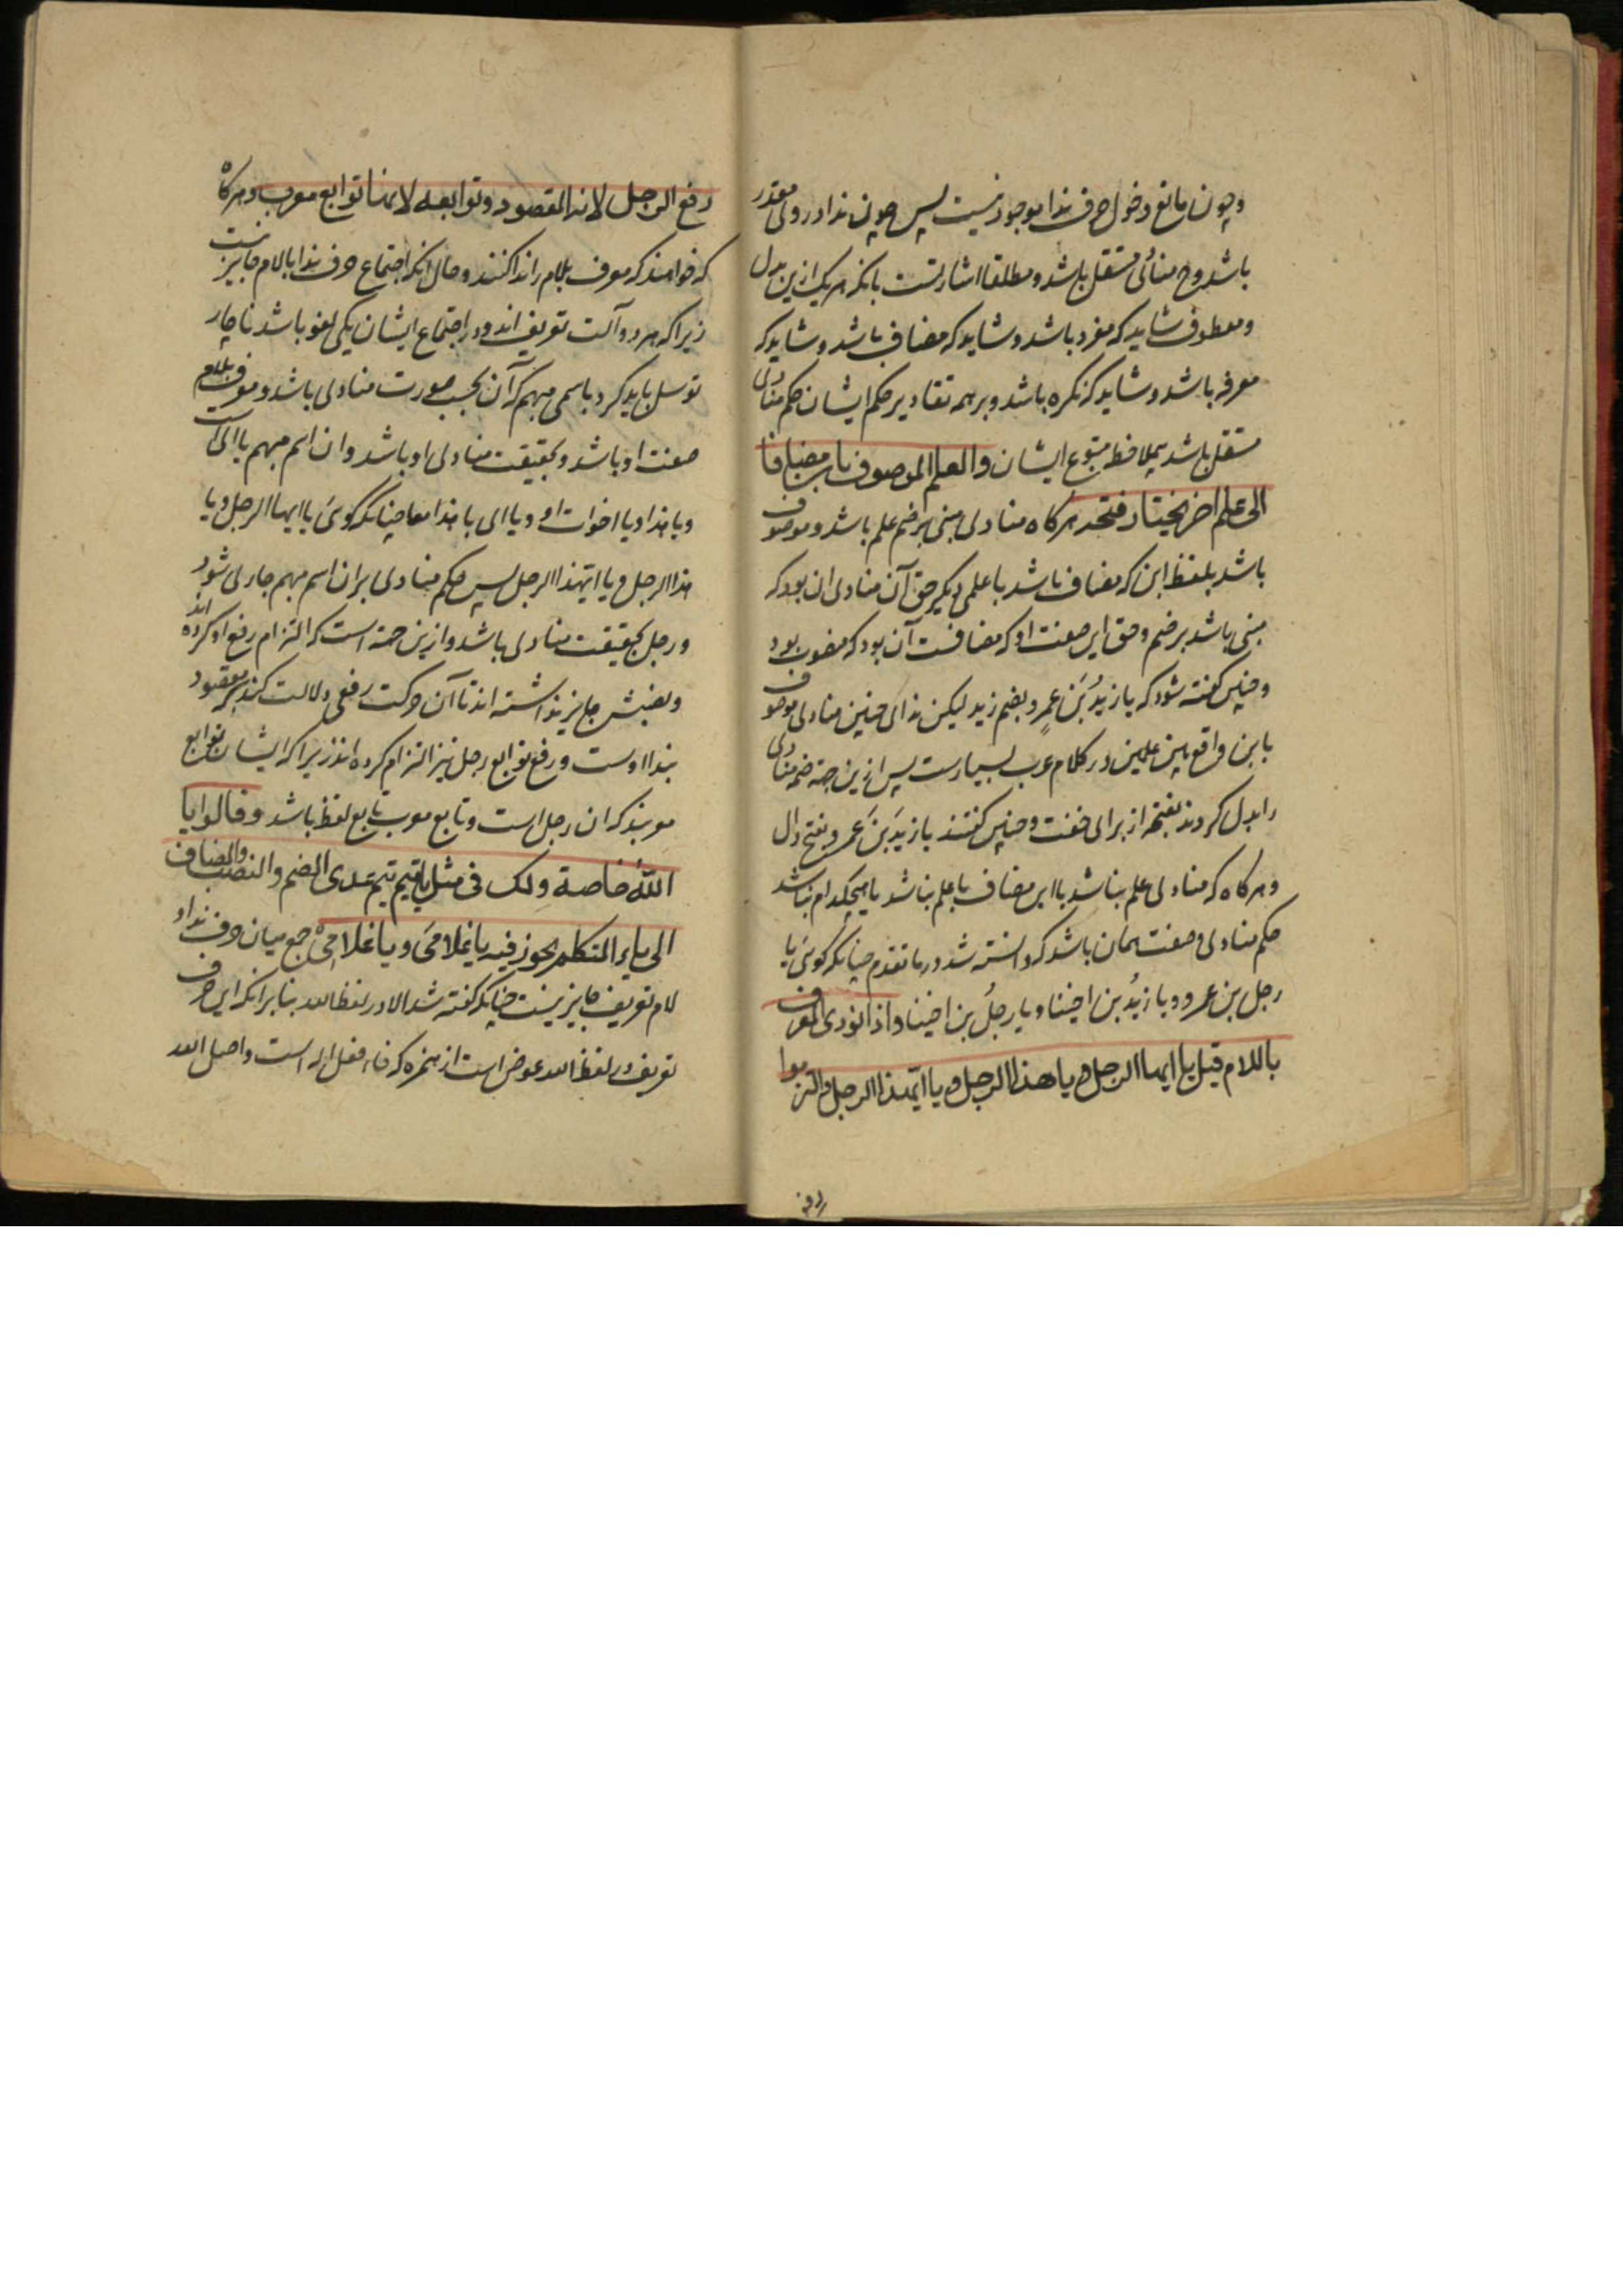 و چون مانع دخول حرف ندا موجود نیست پس چون ندا در وی مقدر
باشد و ح منادی مستقل باشد و مطلقا اشارتست بانکه هر یک ازین بدل
و معطوف شاید که مفرد باشد و شاید که مضاف باشد و شاید که
معرفه باشد و شاید که نکره باشد و بر همه تقادیر حکم ایشان حکم منادی
مستقل باشد بملاحظه متبوع ایشان والعلم الموصوف بابن مضافا
الی علم اخر یختار فتحه هرکاه منادی مبنی بر ضم علم باشد و موصوف
باشد بلفظ ابن که مضاف باشد با علمی دیکر حق آن منادی ان بود که
مبنی باشد بر ضم و حق این صفت او که مضافست آن بود که منصوب بود
و چنین کفته شود که یا زیدُ بنَ عمرٍو بضم زید لیکن ندای چنین منادی موصوف
بابن واقع بین علمین در کلام عرب بسیارست پس ازین جهة ضمه منادی
را بدل کردند بفتحه از برای خفت و چنین کفتند یا زیدَ بنَ عمرو بفتح دال
و هرکاه که منادی علم نباشد یا ابن مضاف با علم نباشد یا هیچکدام نباشد
حکم منادی و صفت همان باشد که دانسته شد در ما تقدم چنانکه کوئی یا
رجل بن عمرو و یا زیدُ بن اخینا و یا رجلُ بن اخینا واذا نودی المعرف
باللام قیل یا ایها الرجل و یا هذا الرجل و یا ایهذا الرجل والتزموا
رفع
رفع الرجل لانه المقصود و توابعه لانها توابع معرب و هرکاه
که خواهند که معرف بلام را ندا کنند و حال آنکه اجتماع حرف ندا با لام جایز نیست
زیرا که هر دو آلت تعریف اند و در اجتماع ایشان یکی لغو باشد ناچار
توسل باید کرد باسمی مبهم که آن بحسب صورت منادی باشد و معرف بلام
صفت او باشد و بحقیقت منادی او باشد و ان اسم مبهم یا ای است
و یا هذا و یا اخوات او و یا ای با هذا معا چنانکه کوئی یا ایها الرجل و یا
هذا الرجل و یا ایهذا الرجل پس حکم منادی بران اسم مبهم جاری شود
و رجل بحقیقت منادی باشد و ازین جهة است که التزام رفع او کرده اند
و نصبش جایز نداشته اند تا آن حرکت رفعی دلالت کند بر مقصود
بندا اوست و رفع توابع رجل نیز التزام کرده اند زیرا که ایشان توابع
معربند که ان رجل است و تابع معرب تابع لفظ باشد و قالوا یا
اللّٰه خاصة ولک فی مثل یا تیم تیم عدی الضم والنصب والمضاف
الی یاء المتکلم یجوز فیه یا غلامیَ و یا غلامیْ جمع میان حرف ندا و
لام تعریف جایز نیست چنانکه کفته شد الا در لفظ الله بنا برانکه این حرف
تعریف در لفظ الله عوض است از همزه که فاء فعل اله است و اصل الله